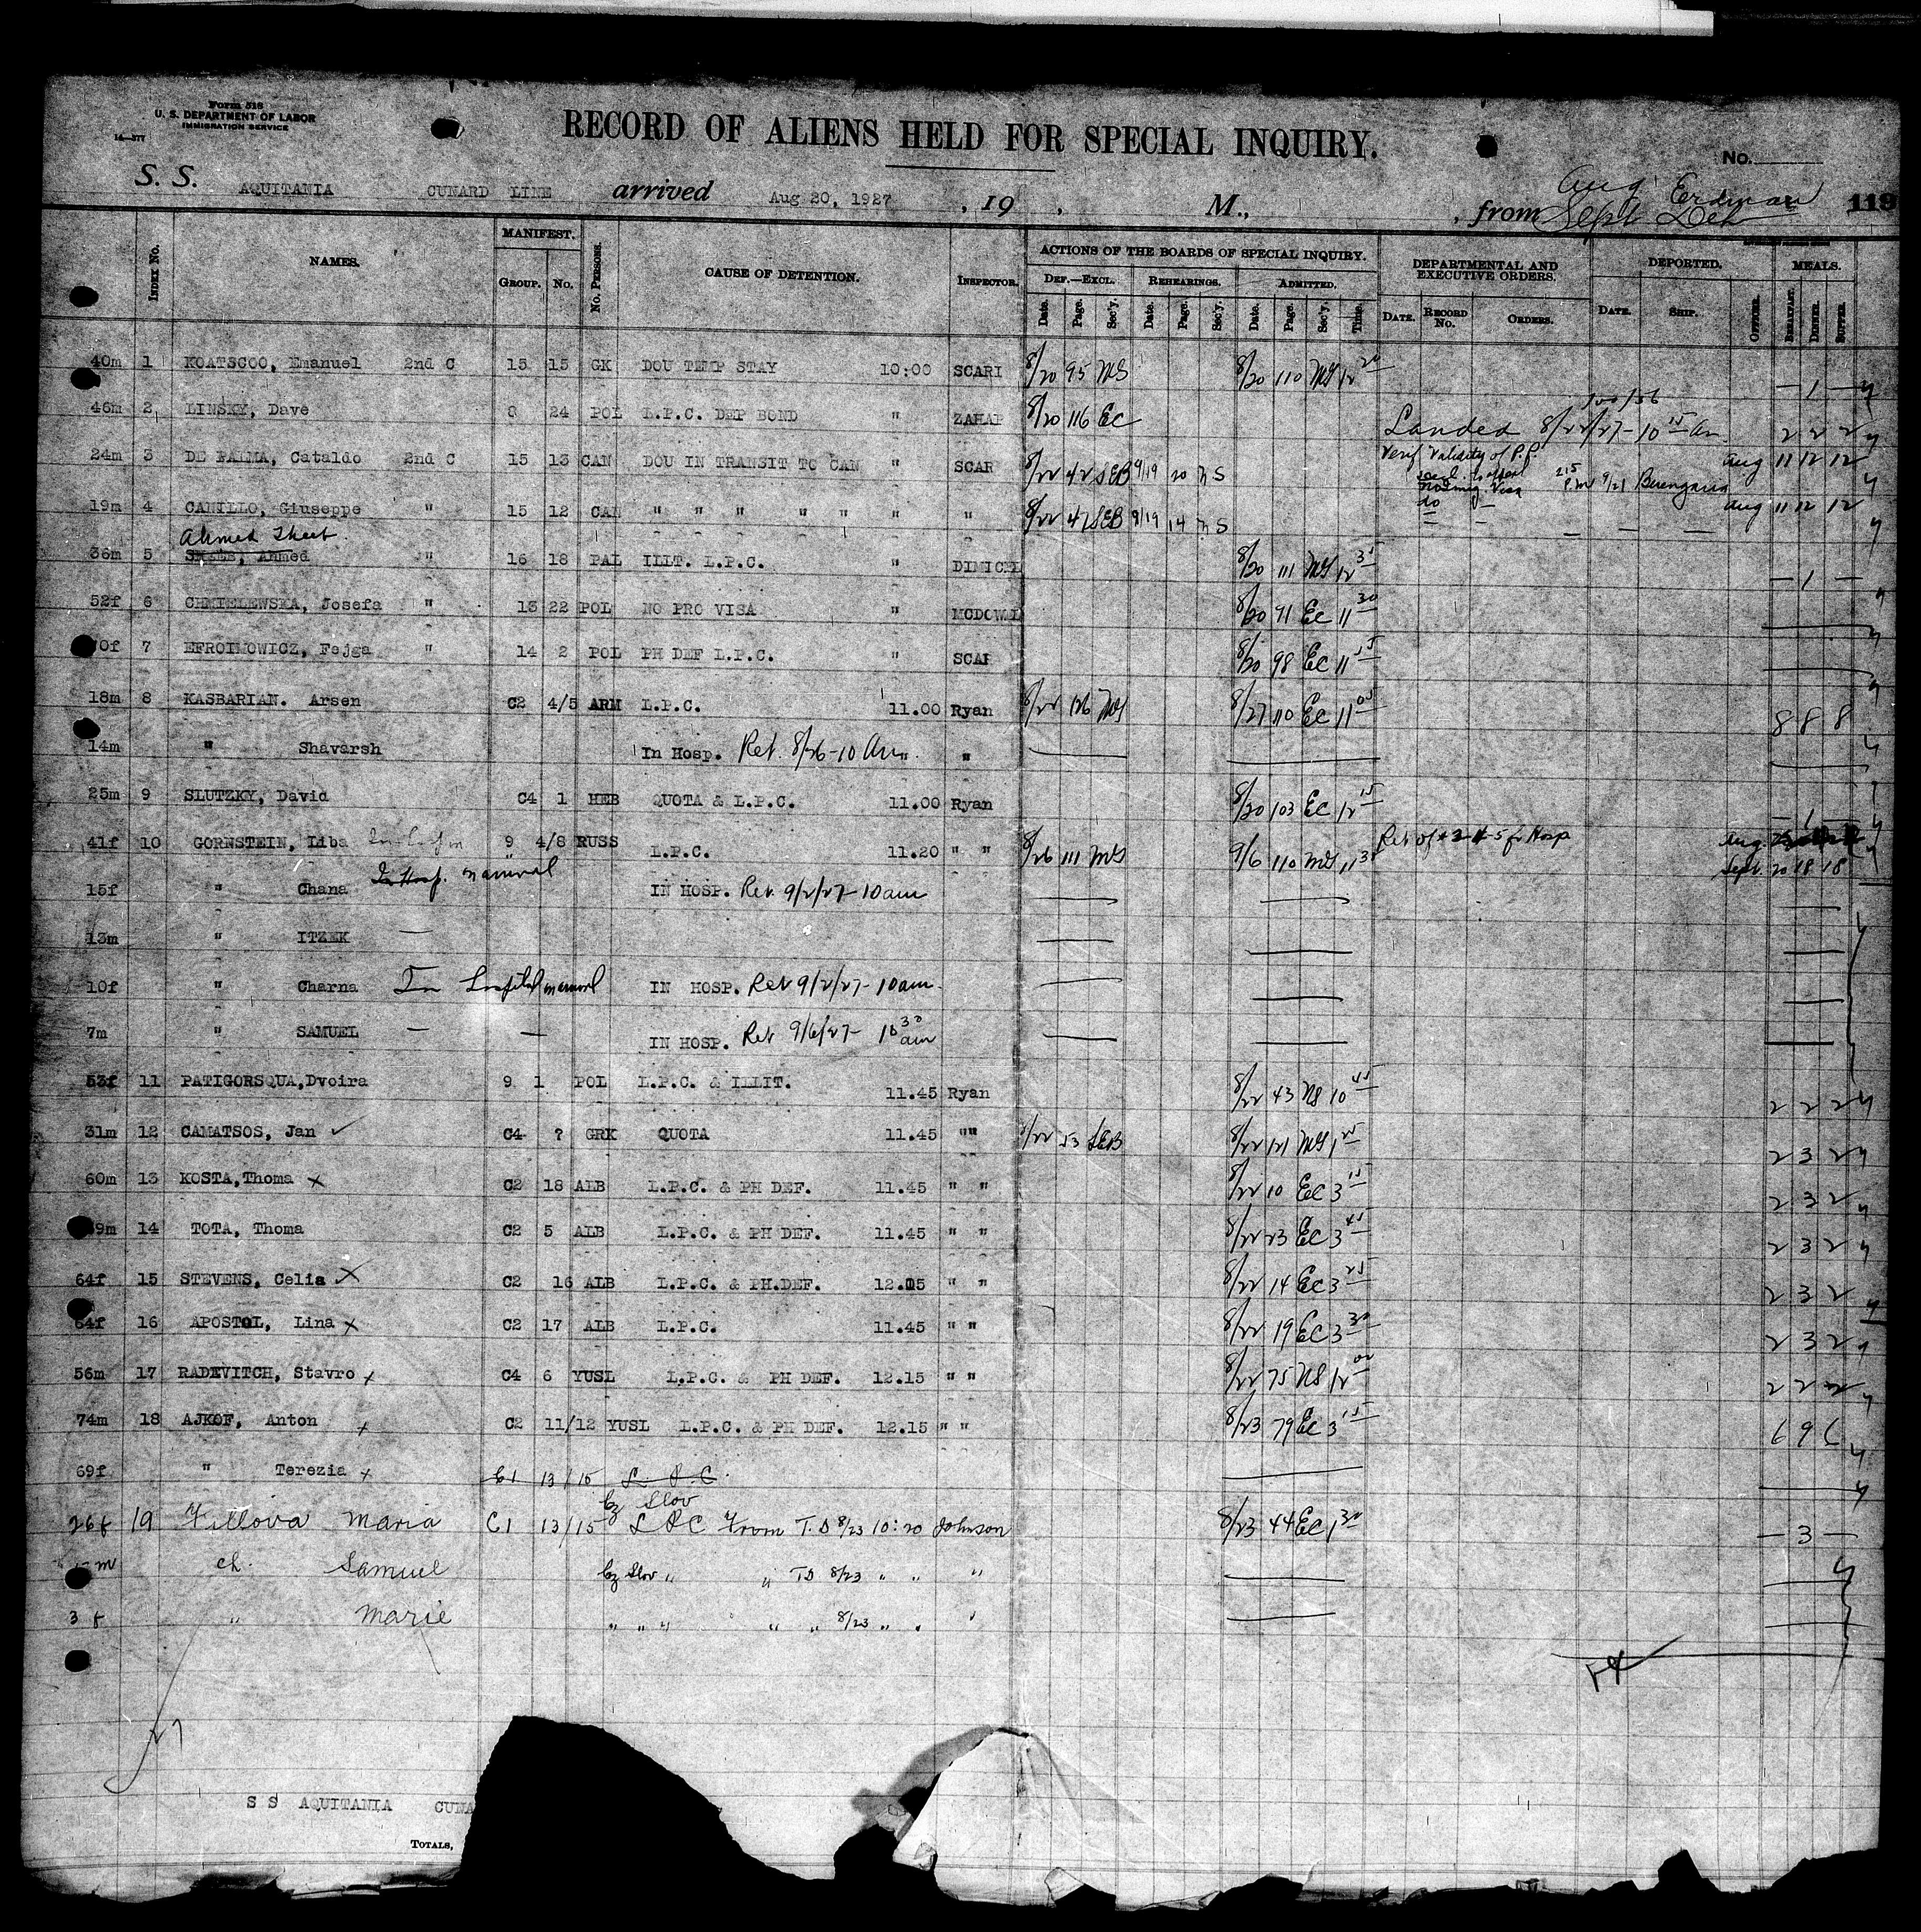 Form 518
U. S. DEPARTMENT OF LABOR
IMMIGRATION SERVICE
14—377
RECORD OF ALIENS HELD FOR SPECIAL INQUIRY.
No.
S. S. AQUITANIA CUNARD LINE arrived Aug 20, 1927, 19 , M., , from Aug Erdman 119
Sept
INDEX No. NAMES. MANIFEST. GROUP. No. No. PERSONS. CAUSE OF DETENTION. INSPECTOR. ACTIONS OF THE BOARDS OF SPECIAL INQUIRY. DEPARTMENTAL AND EXECUTIVE ORDERS. DEPORTED. MEALS.
DEF.—EXCL. REHEARINGS. ADMITTED.
Date. Page. Sec'y. Date. Page. Sec'y. Date. Page. Sec'y. Time. DATE. RECORD No. ORDERS. DATE. SHIP. OFFICER. BREAKFAST. DINNER. SUPPER.
40m 1 KOATSCOO, Emanuel 2nd C 15 15 GK DOU TEMP STAY 10:00 SCARI 8/20 95 MS 8/20 110 MS 12 20 — 1 —
46m 2 LINSKY, Dave 8 24 POL L.P.C. DEP BOND " ZAHAR 8/20 116 EC Landed 8/22/27 - 10 15 am 2 2 2
24m 3 DE PALMA, Cataldo 2nd C 15 13 CAN DOU IN TRANSIT TO CAN " SCAR 8/22 42 SEB 9/19 20 NS Verif Validity of P.P. Visa 215 P.M 9/21 Berengaria Aug 11 12 12
19m 4 CAMILLO, Giuseppe " 15 12 CAN " " " " " " " 8/22 47 SEB 9/19 14 NS do — Aug 11 12 12
Ahmed Theet.
36m 5 Ahmed " 16 18 PAL ILLT. L.P.C. " DIMICEL 8/20 111 MS 12 35 — 1 —
52f 6 CHMIELEWSKA, Josefa " 13 22 POL NO PRO VISA " MCDOWEL 8/20 91 EC 11 30
70f 7 EFROIMOWICZ, Fejga " 14 2 POL PH DEF L.P.C. " SCAR 8/20 98 EC 11 55
18m 8 KASBARIAN. Arsen C2 4/5 ARM L.P.C. 11.00 Ryan 8/22 126 MS 8/27 110 EC 11 00 8 8 8
14m " Shavarsh In Hosp. Ret. 8/26 - 10 Am "
25m 9 SLUTZKY, David C4 1 HEB QUOTA & L.P.C. 11.00 Ryan 8/20 103 EC 12 15 — 1 —
41f 10 GORNSTEIN, Liba 9 4/8 RUSS L.P.C. 11.20 " " 8/26 111 MS 9/6 110 MS 11 35 Ret of #3-4-5 fr Hosp Aug.
Sept. 20 18 18
15f " Chana In Hosp. IN HOSP. Ret 9/2/27 - 10am
13m " ITZEK —
10f " Charna In hospital IN HOSP. Ret 9/2/27 - 10am.
7m " SAMUEL — — IN HOSP. Ret 9/6/27 - 10 30 am
53f 11 PATIGORSQUA,Dvoira 9 1 POL L.P.C. & ILLIT. 11.45 Ryan 8/22 43 NS 10 45 2 2 2
31m 12 CAMATSOS, Jan ✓ C4 ? GRK QUOTA 11.45 "" 8/22 53 SEB 8/22 121 MS 1 25 2 3 2
60m 13 KOSTA,Thoma x C2 18 ALB L.P.C. & PH DEF. 11.45 " " 8/22 10 EC 3 15 2 3 2
39m 14 TOTA, Thoma C2 5 ALB L.P.C. & PH DEF. 11.45 " " 8/22 23 EC 3 45 2 3 2
64f 15 STEVENS, Celia x C2 16 ALB L.P.C. & PH.DEF. 12.05 " " 8/22 14 EC 3 25 2 3 2
64f 16 APOSTOL, Lina x C2 17 ALB L.P.C. 11.45 " " 8/22 19 EC 3 30 2 3 2
56m 17 RADEVITCH, Stavro x C4 6 YUSL L.P.C. & PH DEF. 12.15 " " 8/22 75 NS 12 00 2 2 2
74m 18 AJKOF, Anton x C2 11/12 YUSL L.P.C. & PH DEF. 12.15 " " 8/23 79 EC 3 15 6 9 6
69f " Terezia x C1 13/15 L.P.C.
Cz Slov
26f 19 Fillova Maria C1 13/15 LPC From T.D 8/23 10:20 Johnson 8/23 44 EC 1 30 — 3 —
m ch. Samuel Cz Slov " " TD 8/23 " " "
3f " Marie " " " " " 8/23 " " "
27
S S AQUITANIA CUNA
TOTALS,